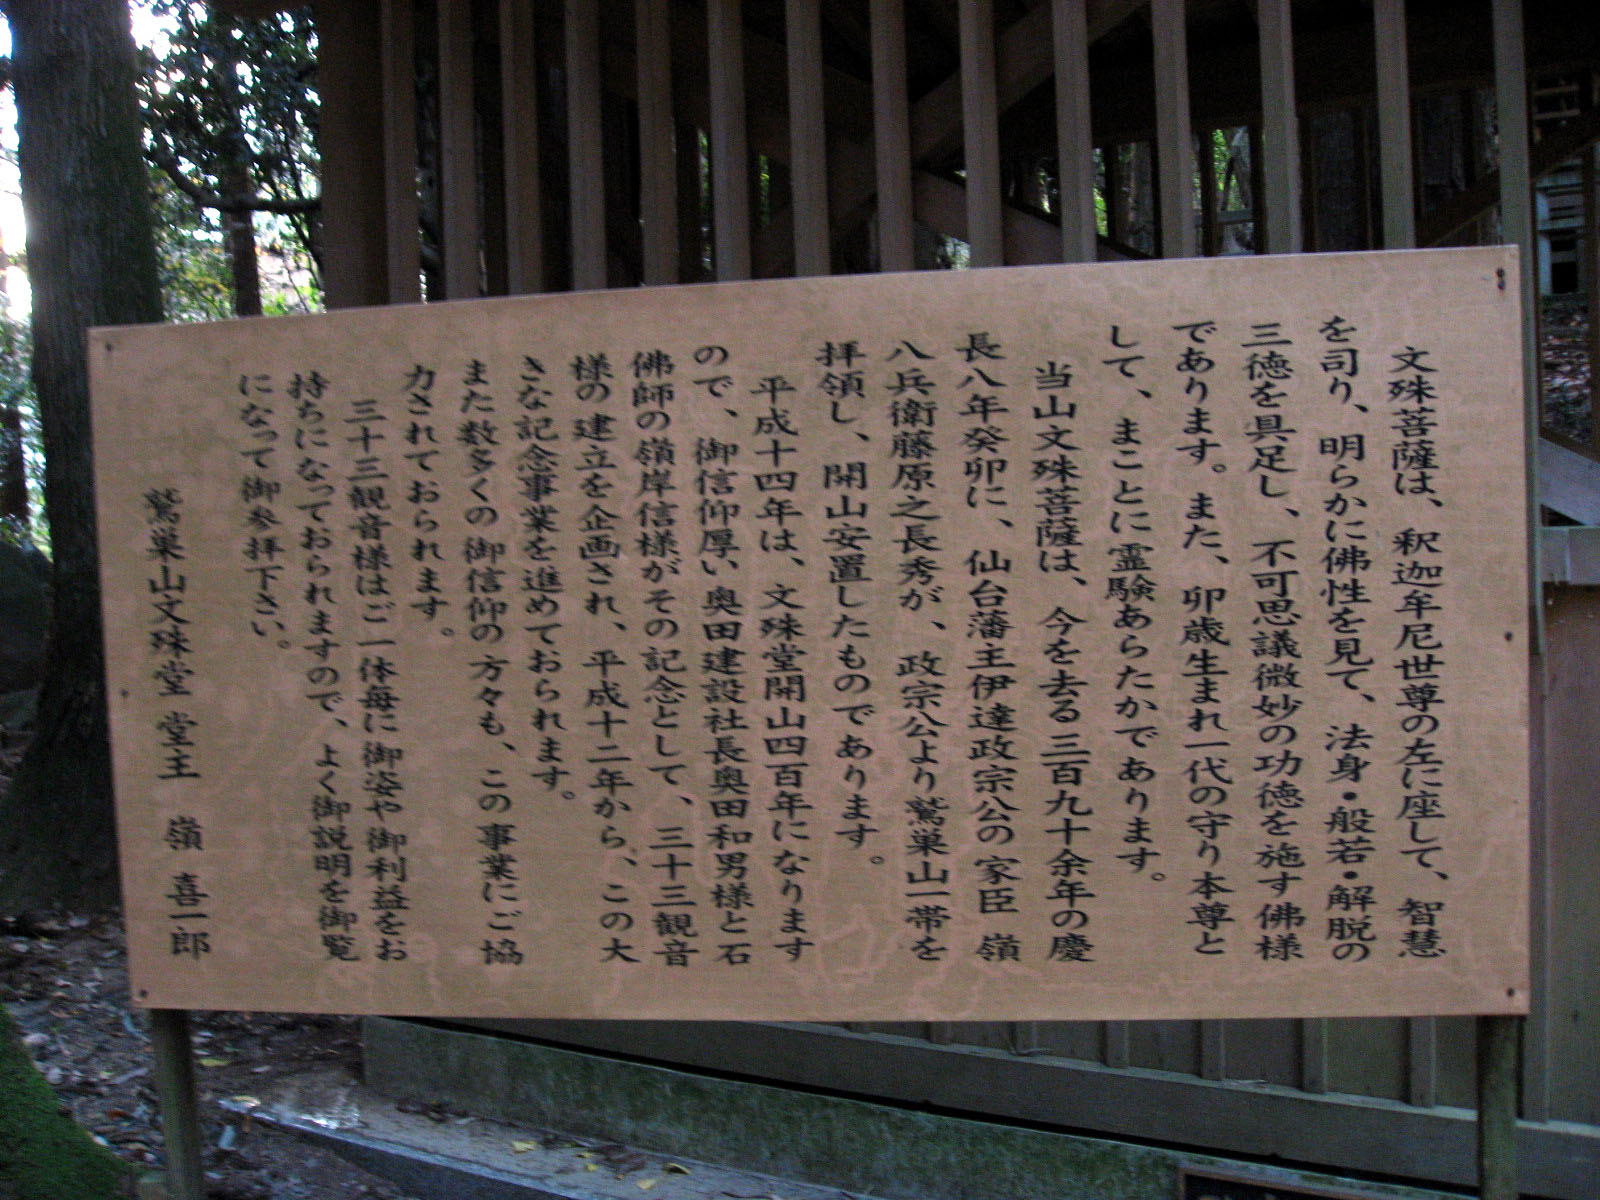 文殊菩薩は、釈迦牟尼世尊の左に座して、智慧
を司り、明らかに佛性を見て、法身・般若・解脱の
三徳を具足し、不可思議微妙の功徳を施す佛様
であります。また、卯歳生まれ一代の守り本尊と
して、まことに霊験あらたかであります。
当山文殊菩薩は、今を去る三百九十余年の慶
長八年癸卯に、仙台藩主伊達政宗公の家臣 嶺
八兵衛藤原之長秀が、政宗公より鷲巣山一帯を
拝領し、開山安置したものであります。
平成十四年は、文殊堂開山四百年になります
ので、御信仰厚い奥田建設社長奥田和男様と石
佛師の嶺岸信様がその記念として、三十三観音
様の建立を企画され、平成十二年から、この大
きな記念事業を進めておられます。
また数多くの御信仰の方々も、この事業にご協
力されております。
三十三観音様はご一体毎に御姿や御利益をお
持ちになっておられますので、よく御説明を御覧
になって御参拝下さい。
鷲巣山文殊堂 堂主 嶺 喜一郎